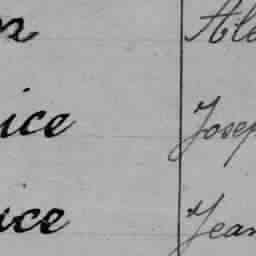 Ale
ice Josep
ice Jean